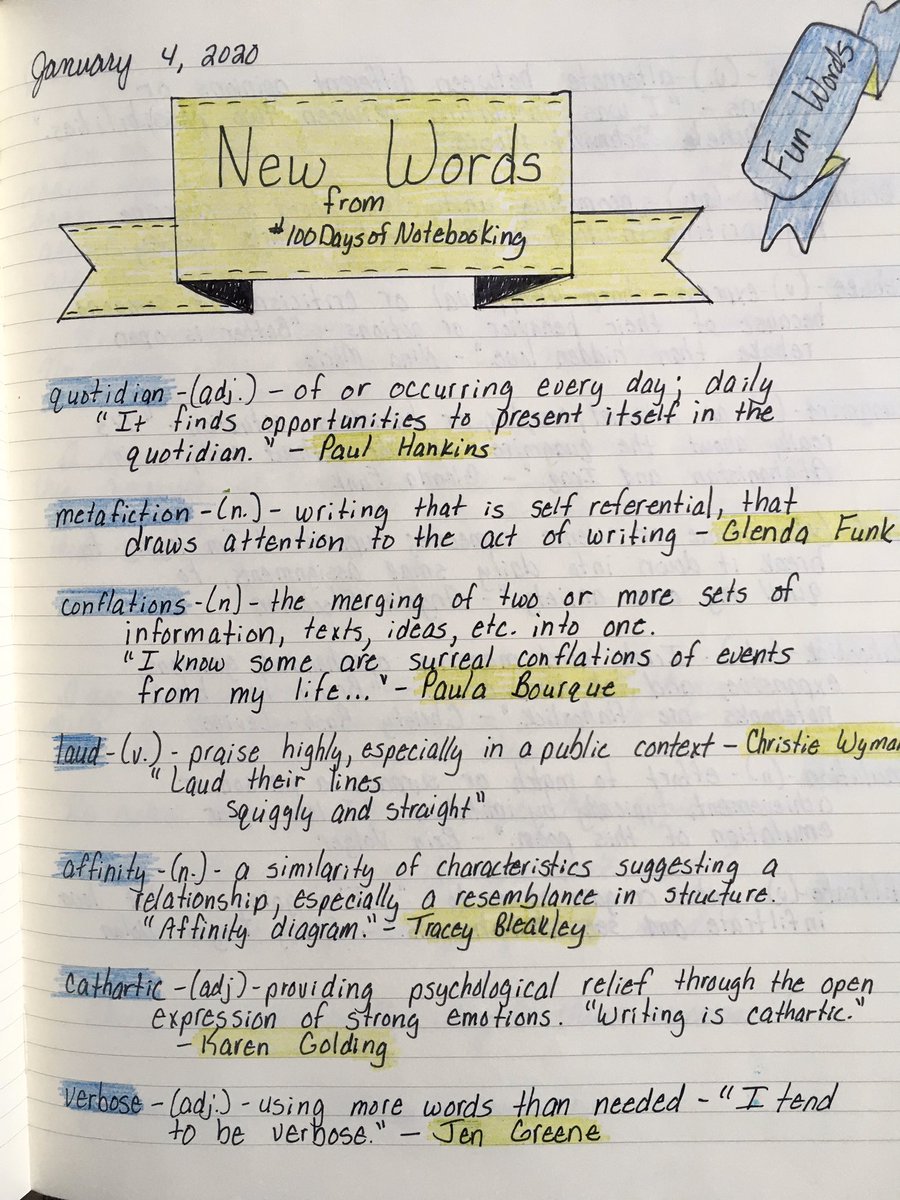 January 4, 2020
Fun Words
New Words
from
#100DaysofNotebooking
quotidian - (adj.) - of or occurring every day; daily
"It finds opportunities to present itself in the
quotidian." - Paul Hankins
metafiction - (n.) - writing that is self referential, that
draws attention to the act of writing - Glenda Funk
conflations - (n) - the merging of two or more sets of
information, texts, ideas, etc. into one.
"I know some are surreal conflations of events
from my life..." - Paula Bourque
laud - (v.) - praise highly, especially in a public context - Christie Wyman
"Laud their lines
squiggly and straight"
affinity - (n.) - a similarity of characteristics suggesting a
relationship, especially a resemblance in structure.
"Affinity diagram." - Tracey Bleakley
Cathartic - (adj) - providing psychological relief through the open
expression of strong emotions. "Writing is cathartic."
- Karen Golding
verbose - (adj.) - using more words than needed - "I tend
to be verbose." - Jen Greene